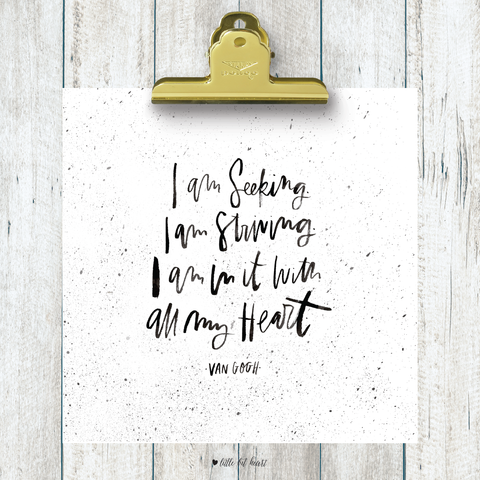 I am Seeking.
I am Striving
I am in it With
all my Heart
-VAN GOGH-
little bit heart